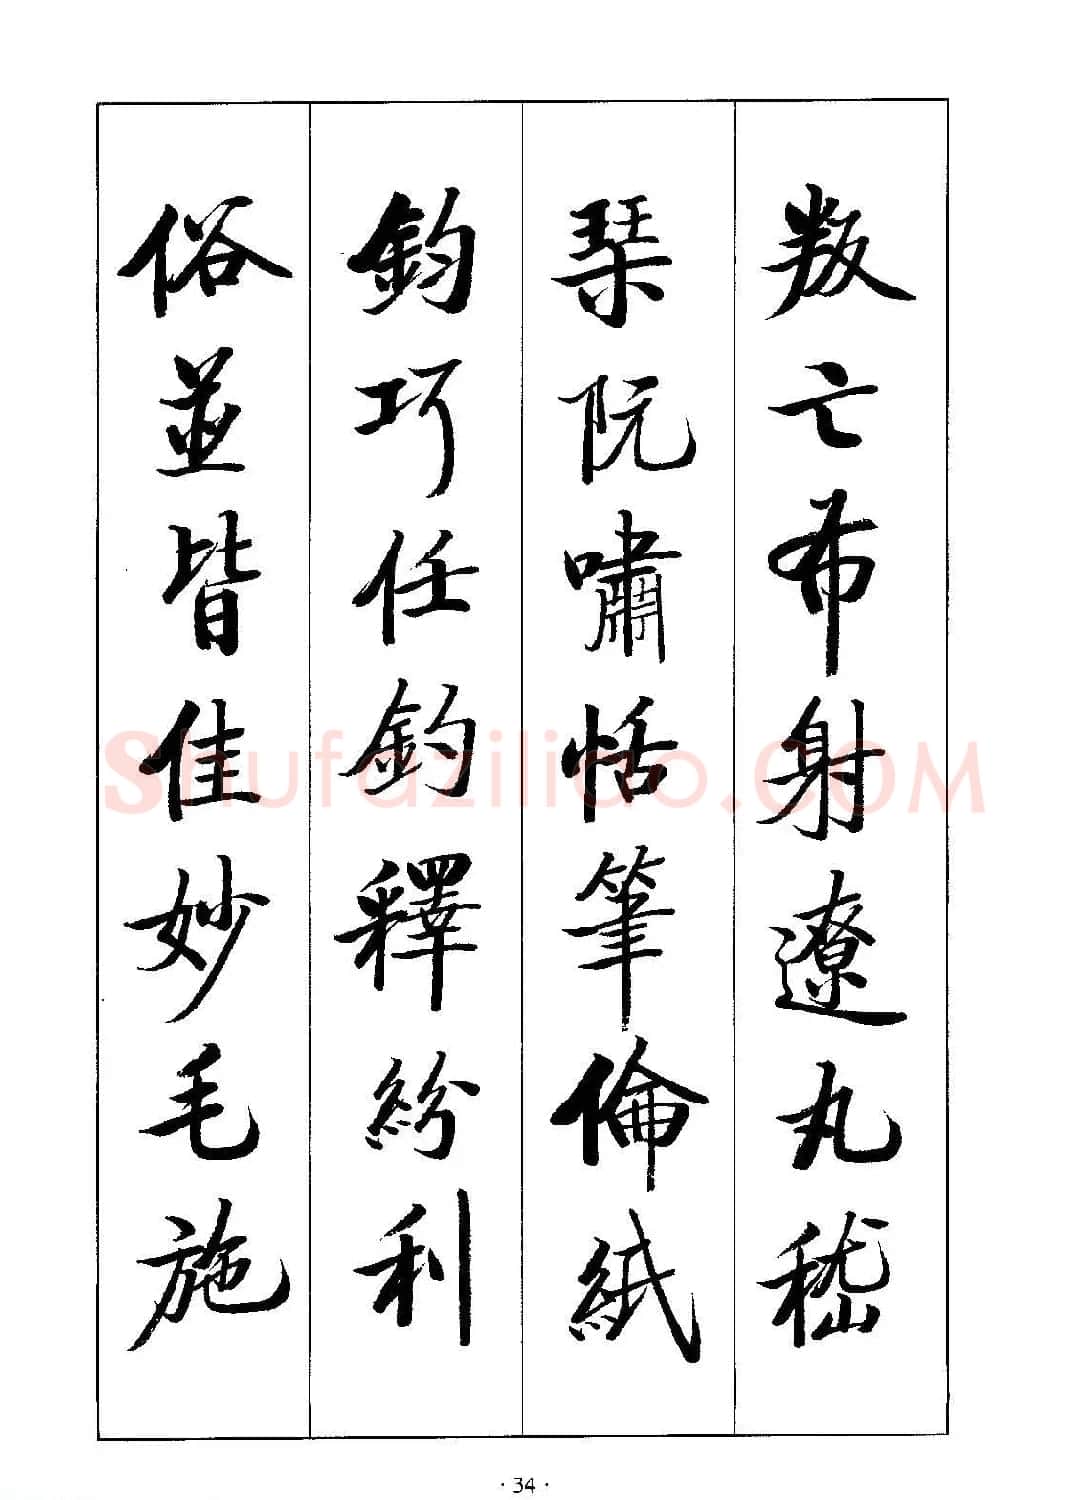 叛亡布射遼丸嵇
琹阮嘯恬筆倫紙
鈞巧任釣釋紛利
俗並皆佳妙毛施
shufaziliao.COM
· 34 ·